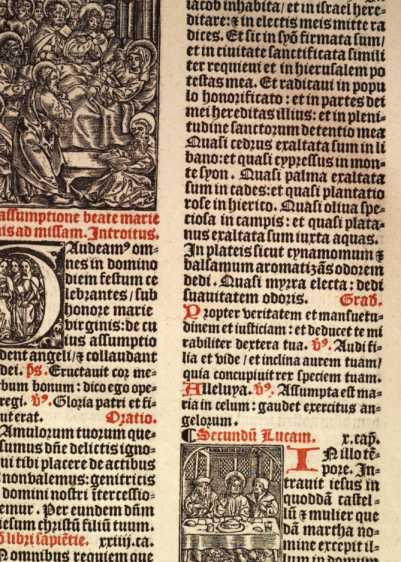 assumptione beate marie
uis ad missam. Introitus.
GAudeam⁹ om=
nes in domino
diem festum ce
lebrantes / sub
honore marie
virginis: de cu
ius assumptio
dent angeli / ⁊ collaudant
dei. ps̄. Eructauit cor me=
bum bonum : dico ego ope=
regi. v⁹. Gloria patri et fi=
ut erat. Oratio.
amulorum tuorum que=
sumus dn̄e delictis igno=
ui tibi placere de actibus
non valemus: genitricis
domini nostri ītercessio=
emur . Per eundem dn̄m
iesum christū filiū tuum.
libri sapiētie. xxiiij. ca.
N omnibus requiem que
iacob inhabita / et in israel here=
ditare: ⁊ in electis meis mitte ra
dices. Et sic in syō firmata sum /
et in ciuitate sanctificata simili
ter requieui et in hierusalem po
testas mea. Et radicaui in popu
lo honorificato : et in partes dei
mei hereditas illius: et in pleni=
tudine sanctorum detentio mea
Quasi cedrus exaltata sum in li
bano: et quasi cypressus in mon=
te syon . Quasi palma exaltata
sum in cades: et quasi plantatio
rose in hierico. Quasi oliua spe=
ciosa in campis : et quasi plata=
nus exaltata sum iuxta aquas.
In plateis sicut cynamomum ⁊
balsamum aromatizās odorem
dedi . Quasi myrra electa : dedi
suauitatem odoris. Grad.
Propter veritatem et mansuetu=
dinem et iusticiam : et deducet te mi
rabiliter dextera tua. v⁹. Audi fi=
lia et vide / et inclina aurem tuam /
quia concupiuit rex speciem tuam.
Alleluya. v⁹. Assumpta est ma=
ria in celum : gaudet exercitus an=
gelorum.
¶Secundū Lucam. x. cap.
IN illo tē=
pore. In=
trauit iesus in
quoddā castel=
lū ⁊ mulier que
dā martha no=
mine excepit il=
lum in domum